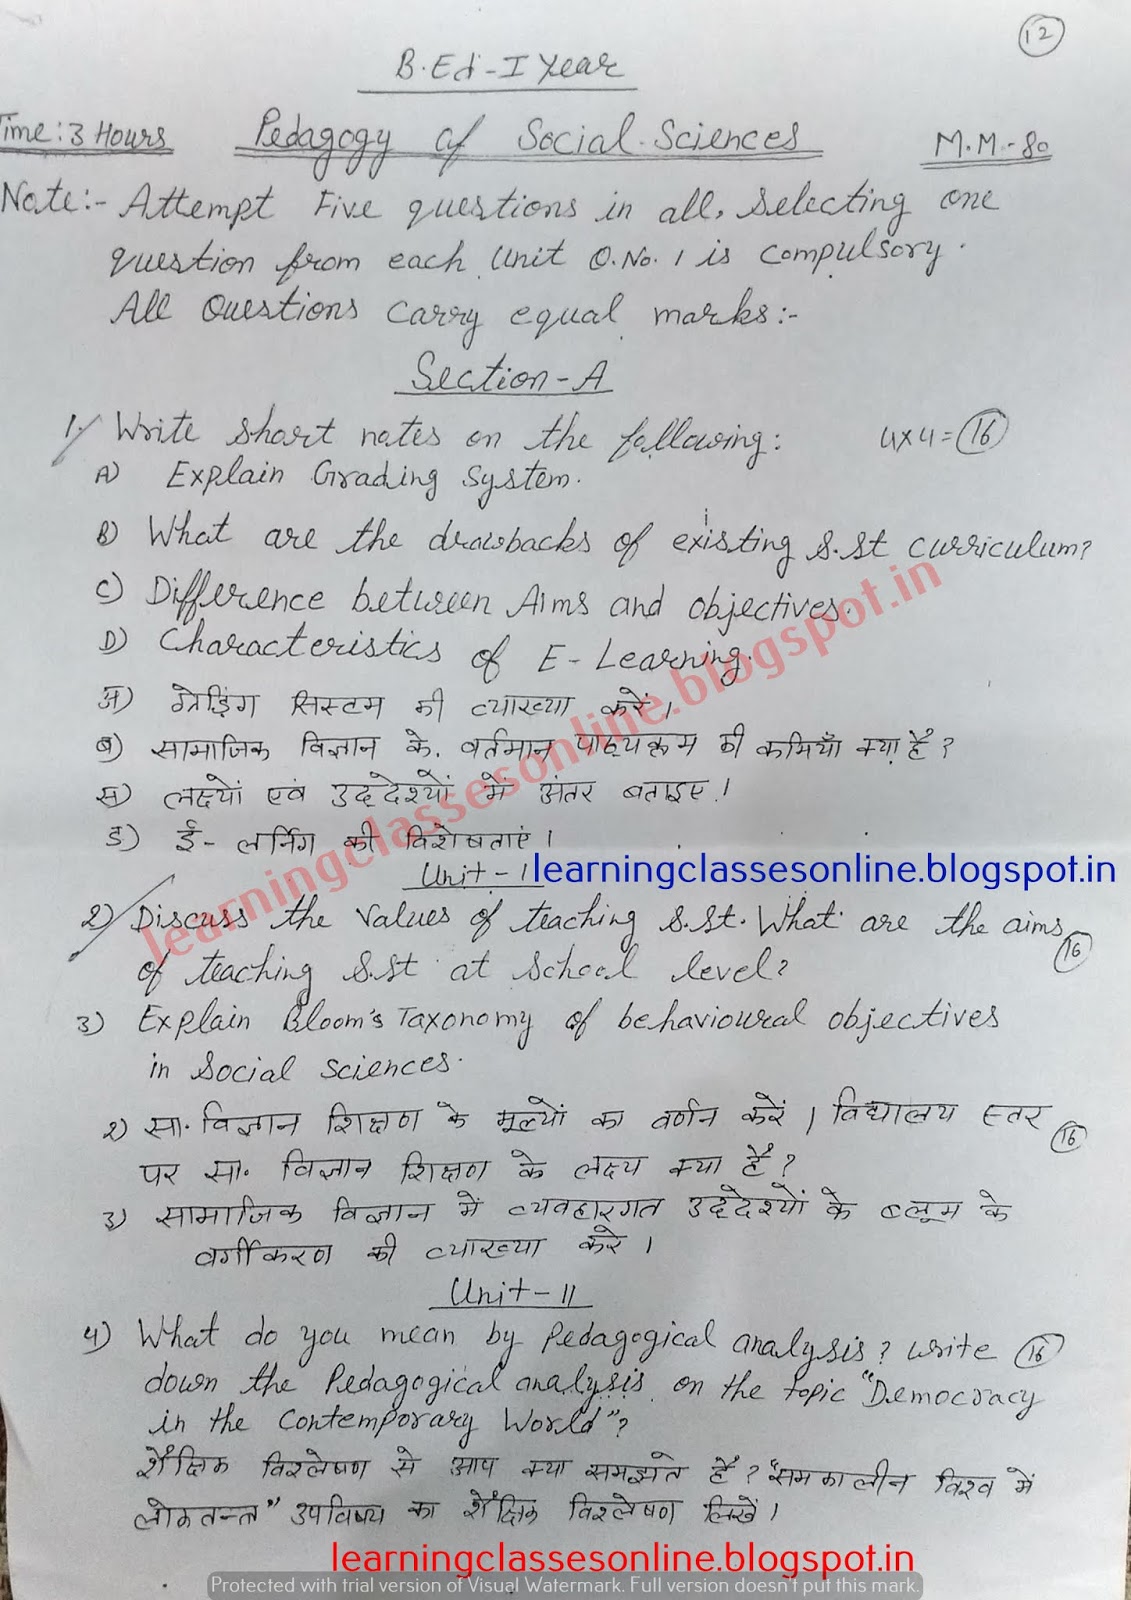 12
B.Ed-I Year
Time: 3 Hours Pedagogy of Social Sciences M.M.-80
Note:- Attempt Five questions in all, Selecting one
question from each Unit Q.No. 1 is compulsory.
All Questions carry equal marks:-
Section-A
1. Write short notes on the following: 4x4=16
A) Explain Grading System.
B) What are the drawbacks of existing S.St curriculum?
C) Difference between Aims and objectives.
D) Characteristics of E-Learning.
अ) ग्रेडिंग सिस्टम की व्याख्या करें।
ब) सामाजिक विज्ञान के वर्तमान पाठ्यक्रम की कमियाँ क्या है?
स) लक्ष्यों एवं उद्देश्यों में अंतर बताइए।
ड) ई- लर्निंग की विशेषताएं।
learningclassesonline.blogspot.in
Unit-I learningclassesonline.blogspot.in
2) Discuss the values of teaching S.St. What are the aims
of teaching S.St at School level? 16
3) Explain Bloom's Taxonomy of behavioural objectives
in Social sciences.
2) सा. विज्ञान शिक्षण के मूल्यों का वर्णन करें। विद्यालय स्तर
पर सा. विज्ञान शिक्षण के लक्ष्य क्या है? 16
3) सामाजिक विज्ञान में व्यवहारगत उद्देश्यों के ब्लूम के
वर्गीकरण की व्याख्या करे।
Unit-II
4) What do you mean by Pedagogical analysis? write 16
down the Pedagogical analysis on the topic "Democracy
in the Contemporary World"?
शैक्षिक विश्लेषण से आप क्या समझते है? "समकालीन विश्व में
लोकतन्त" उपविषय का शैक्षिक विश्लेषण लिखें।
learningclassesonline.blogspot.in
Protected with trial version of Visual Watermark. Full version doesn't put this mark.